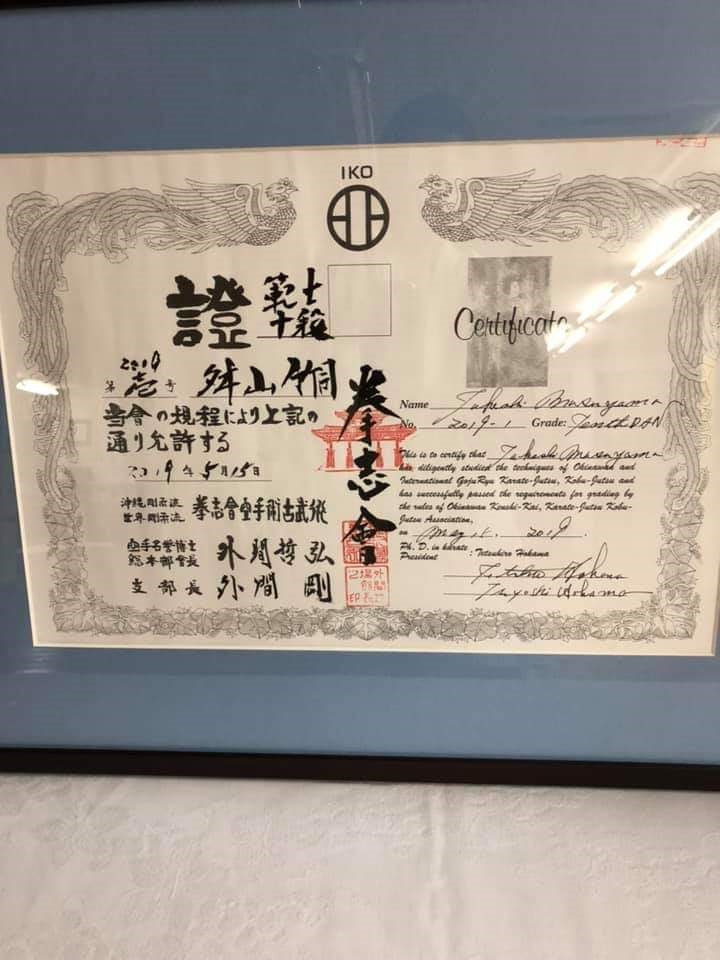 IKO
證
範士
十段
2019
第壱号
舛山
當會の規程により上記の
通り允許する
2019年5月15日
沖縄剛柔流
世界剛柔流
拳志會空手術古武術
空手名誉博士
総本部會長
外間哲弘
支部長
外間 剛
拳志會
Certificate
Name Takeshi Masuyama
No. 2019-1 Grade: Tenth DAN
This is to certify that Takeshi Masuyama
has diligently studied the techniques of Okinawan and
International GojuRyu Karate-Jutsu, Kobu-Jutsu and
has successfully passed the requirements for grading by
the rules of Okinawan Kenshi-Kai, Karate-Jutsu Kobu-
Jutsu Association,
on May, 2019.
Ph. D. in karate
President : Tetsuhiro Hokama
Tetsuhiro Hokama
Tsuyoshi Hokama